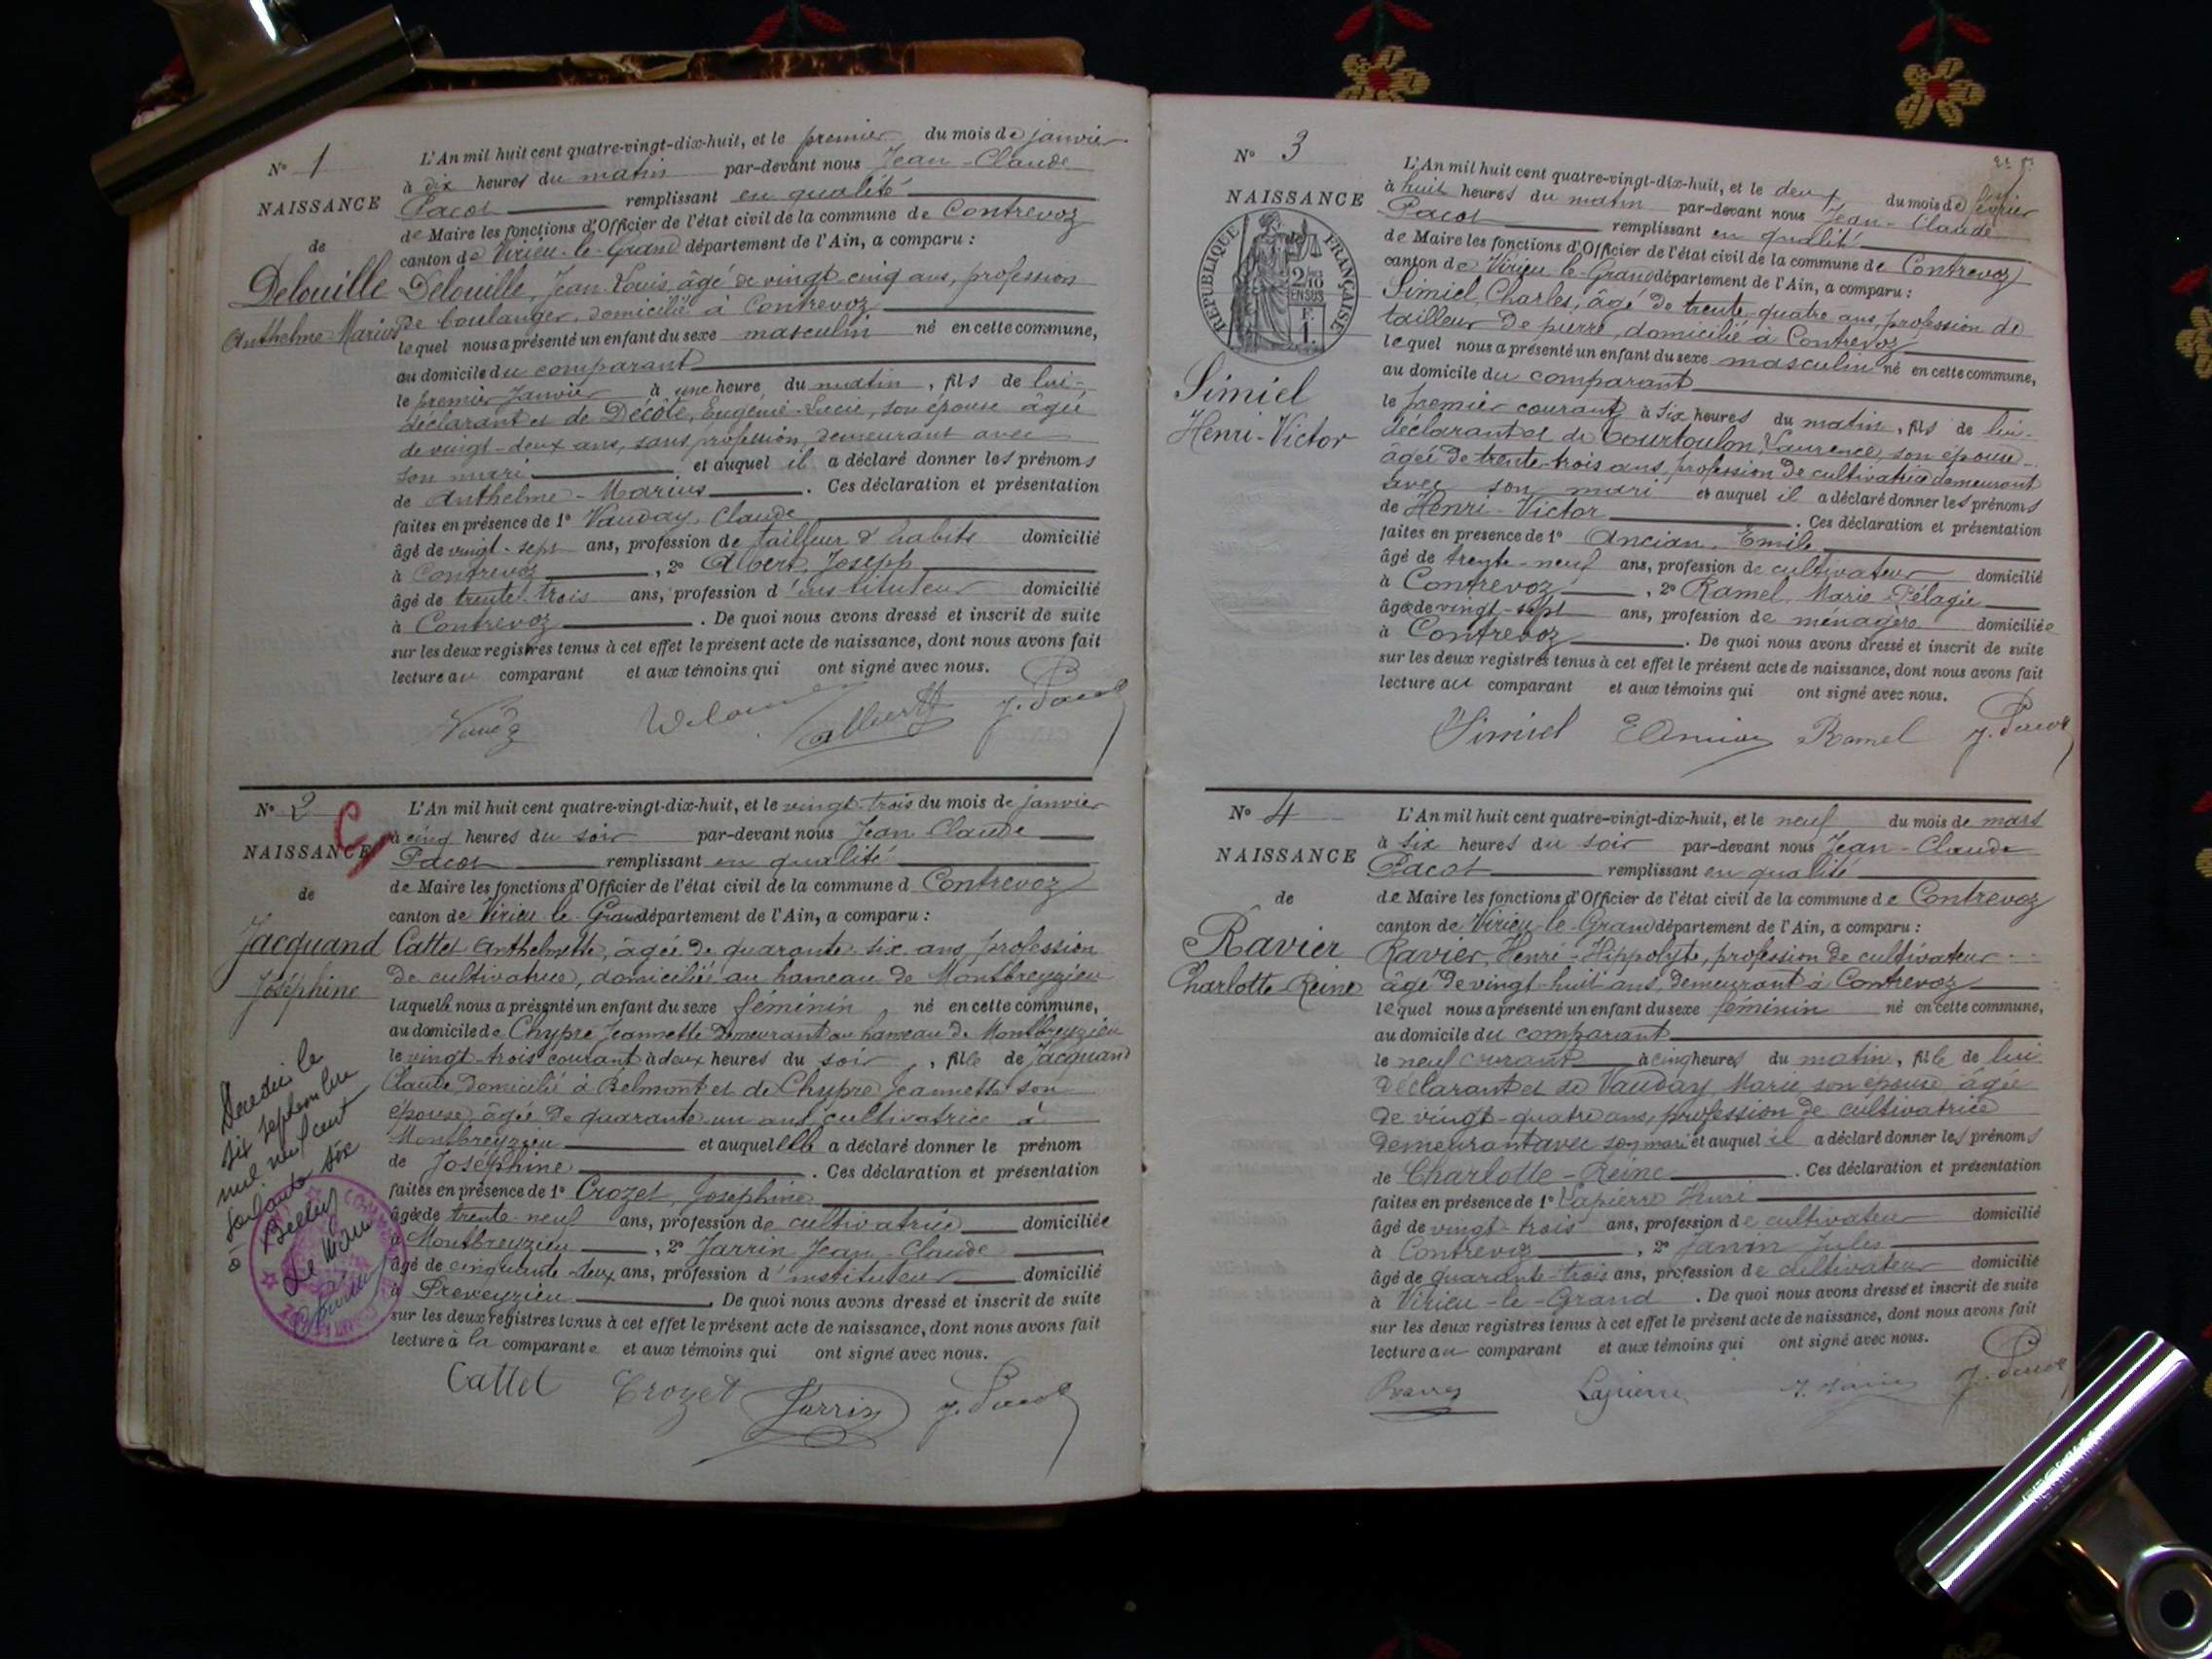 N° 1
NAISSANCE
de
Delouille
Anthelme-Marius
L'An mil huit cent quatre-vingt-dix-huit, et le premier du mois de janvier
à dix heures du matin par-devant nous Jean-Claude
Pacot remplissant en qualité
de Maire les fonctions d'Officier de l'état civil de la commune de Contrevoz
canton de Virieu-le-Grand département de l'Ain, a comparu :
Delouille, Jean Louis, âgé de vingt-cinq ans, profession
de boulanger, domicilié à Contrevoz
lequel nous a présenté un enfant du sexe masculin né en cette commune,
au domicile du comparant
le premier Janvier à une heure du matin, fils de lui-
déclarant et de Decôte, Eugénie-Lucie, son épouse âgée
de vingt-deux ans, sans profession, demeurant avec
son mari et auquel il a déclaré donner les prénoms
de Anthelme-Marius. Ces déclaration et présentation
faites en présence de 1° Vauday, Claude
âgé de vingt-sept ans, profession de tailleur d'habits domicilié
à Contrevoz, 2° Albert, Joseph
âgé de trente-trois ans, profession d'instituteur domicilié
à Contrevoz. De quoi nous avons dressé et inscrit de suite
sur les deux registres tenus à cet effet le présent acte de naissance, dont nous avons fait
lecture au comparant et aux témoins qui ont signé avec nous.
Albert J. Pacot
N° 2
NAISSANCE
de
Jacquand
Joséphine
Décédée le
six septembre
mil neuf cent
soixante six
Le Maire
L'An mil huit cent quatre-vingt-dix-huit, et le vingt-trois du mois de janvier
à cinq heures du soir par-devant nous Jean Claude
Pacot remplissant en qualité
de Maire les fonctions d'Officier de l'état civil de la commune d Contrevoz
canton de Virieu-le-Grand département de l'Ain, a comparu :
Cattet Anthelmette, âgée de quarante-six ans, profession
de cultivatrice, domiciliée au hameau de Montbreyzieu
laquelle nous a présenté un enfant du sexe féminin né en cette commune,
au domicile de Chypre Jeannette demeurant au hameau de Montbreyzieu
le vingt-trois courant à deux heures du soir, fille de Jacquand
Claude domicilié à Belmont et de Chypre Jeannette son
épouse, âgée de quarante-un ans, cultivatrice à
Montbreyzieu et auquel elle a déclaré donner le prénom
de Joséphine. Ces déclaration et présentation
faites en présence de 1° Crozet, Joséphine
âgée de trente-neuf ans, profession de cultivatrice domiciliée
à Montbreyzieu, 2° Jarrin Jean-Claude
âgé de cinquante-deux ans, profession d'instituteur domicilié
à Preveyzieu. De quoi nous avons dressé et inscrit de suite
sur les deux registres tenus à cet effet le présent acte de naissance, dont nous avons fait
lecture à la comparante et aux témoins qui ont signé avec nous.
Cattet Crozet Jarrin J. Pacot
N° 3
NAISSANCE
de
RÉPUBLIQUE FRANÇAISE
2/10
EN SUS
F.
1.
Simiel
Henri-Victor
L'An mil huit cent quatre-vingt-dix-huit, et le deux du mois de février
à huit heures du matin par-devant nous Jean-Claude
Pacot remplissant en qualité
de Maire les fonctions d'Officier de l'état civil de la commune de Contrevoz
canton de Virieu-le-Grand département de l'Ain, a comparu :
Simiel, Charles, âgé de trente-quatre ans, profession de
tailleur de pierre, domicilié à Contrevoz
lequel nous a présenté un enfant du sexe masculin né en cette commune,
au domicile du comparant
le premier courant à six heures du matin, fils de lui-
déclarant et de Courtoulon, Laurence, son épouse
âgée de trente-trois ans, profession de cultivatrice demeurant
avec son mari et auquel il a déclaré donner les prénoms
de Henri-Victor. Ces déclaration et présentation
faites en présence de 1° Ancian, Emile
âgé de trente-neuf ans, profession de cultivateur domicilié
à Contrevoz, 2° Ramel, Marie-Pélagie
âgée de vingt-sept ans, profession de ménagère domiciliée
à Contrevoz. De quoi nous avons dressé et inscrit de suite
sur les deux registres tenus à cet effet le présent acte de naissance, dont nous avons fait
lecture au comparant et aux témoins qui ont signé avec nous.
Simiel E Ancian Ramel J. Pacot
N° 4
NAISSANCE
de
Ravier
Charlotte-Reine
L'An mil huit cent quatre-vingt-dix-huit, et le neuf du mois de mars
à six heures du soir par-devant nous Jean-Claude
Pacot remplissant en qualité
de Maire les fonctions d'Officier de l'état civil de la commune de Contrevoz
canton de Virieu-le-Grand département de l'Ain, a comparu :
Ravier, Henri-Hippolyte, profession de cultivateur
âgé de vingt-huit ans, demeurant à Contrevoz
lequel nous a présenté un enfant du sexe féminin né en cette commune,
au domicile du comparant
le neuf courant à cinq heures du matin, fille de lui
déclarant et de Vauday Marie son épouse âgée
de vingt-quatre ans, profession de cultivatrice
demeurant avec son mari et auquel il a déclaré donner les prénoms
de Charlotte-Reine. Ces déclaration et présentation
faites en présence de 1° Lapierre Henri
âgé de vingt-trois ans, profession de cultivateur domicilié
à Contrevoz, 2° Janin Jules
âgé de quarante-trois ans, profession de cultivateur domicilié
à Virieu-le-Grand. De quoi nous avons dressé et inscrit de suite
sur les deux registres tenus à cet effet le présent acte de naissance, dont nous avons fait
lecture au comparant et aux témoins qui ont signé avec nous.
Lapierre J. Janin J. Pacot